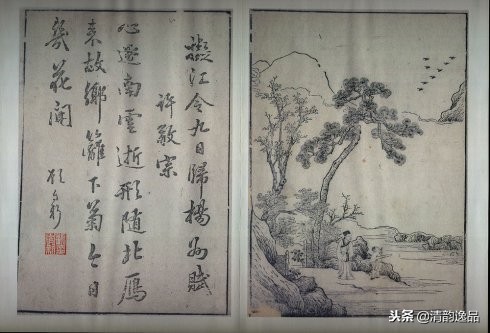 擬江令九日歸楊州賦
許敬宗
心逐南雲逝形隨北鴈
來故鄉籬下菊今日
幾花開
头条 @清韵逸品